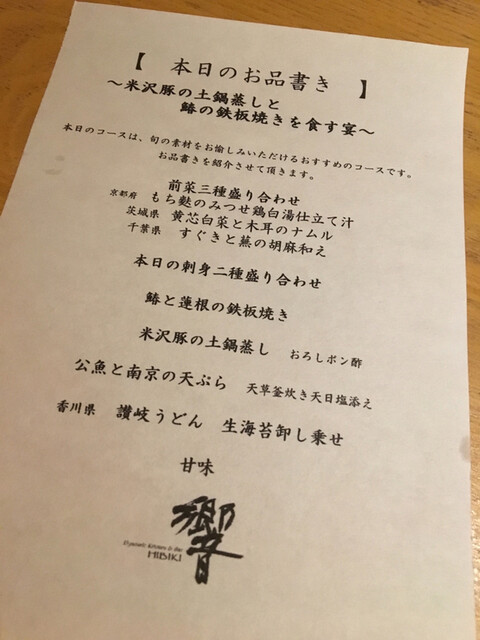 【 本日のお品書き 】
～米沢豚の土鍋蒸しと
鰆の鉄板焼きを食す宴～
本日のコースは、旬の素材をお愉しみいただけるおすすめのコースです。
お品書きを紹介させて頂きます。
前菜三種盛り合わせ
京都府 もち麩のみつせ鶏白湯仕立て汁
茨城県 黄芯白菜と木耳のナムル
千葉県 すぐきと蕪の胡麻和え
本日の刺身二種盛り合わせ
鰆と蓮根の鉄板焼き
米沢豚の土鍋蒸し おろしポン酢
公魚と南京の天ぷら 天草釜炊き天日塩添え
香川県 讃岐うどん 生海苔卸し乗せ
甘味
響
Dynamic Kitchen & Bar
HIBIKI